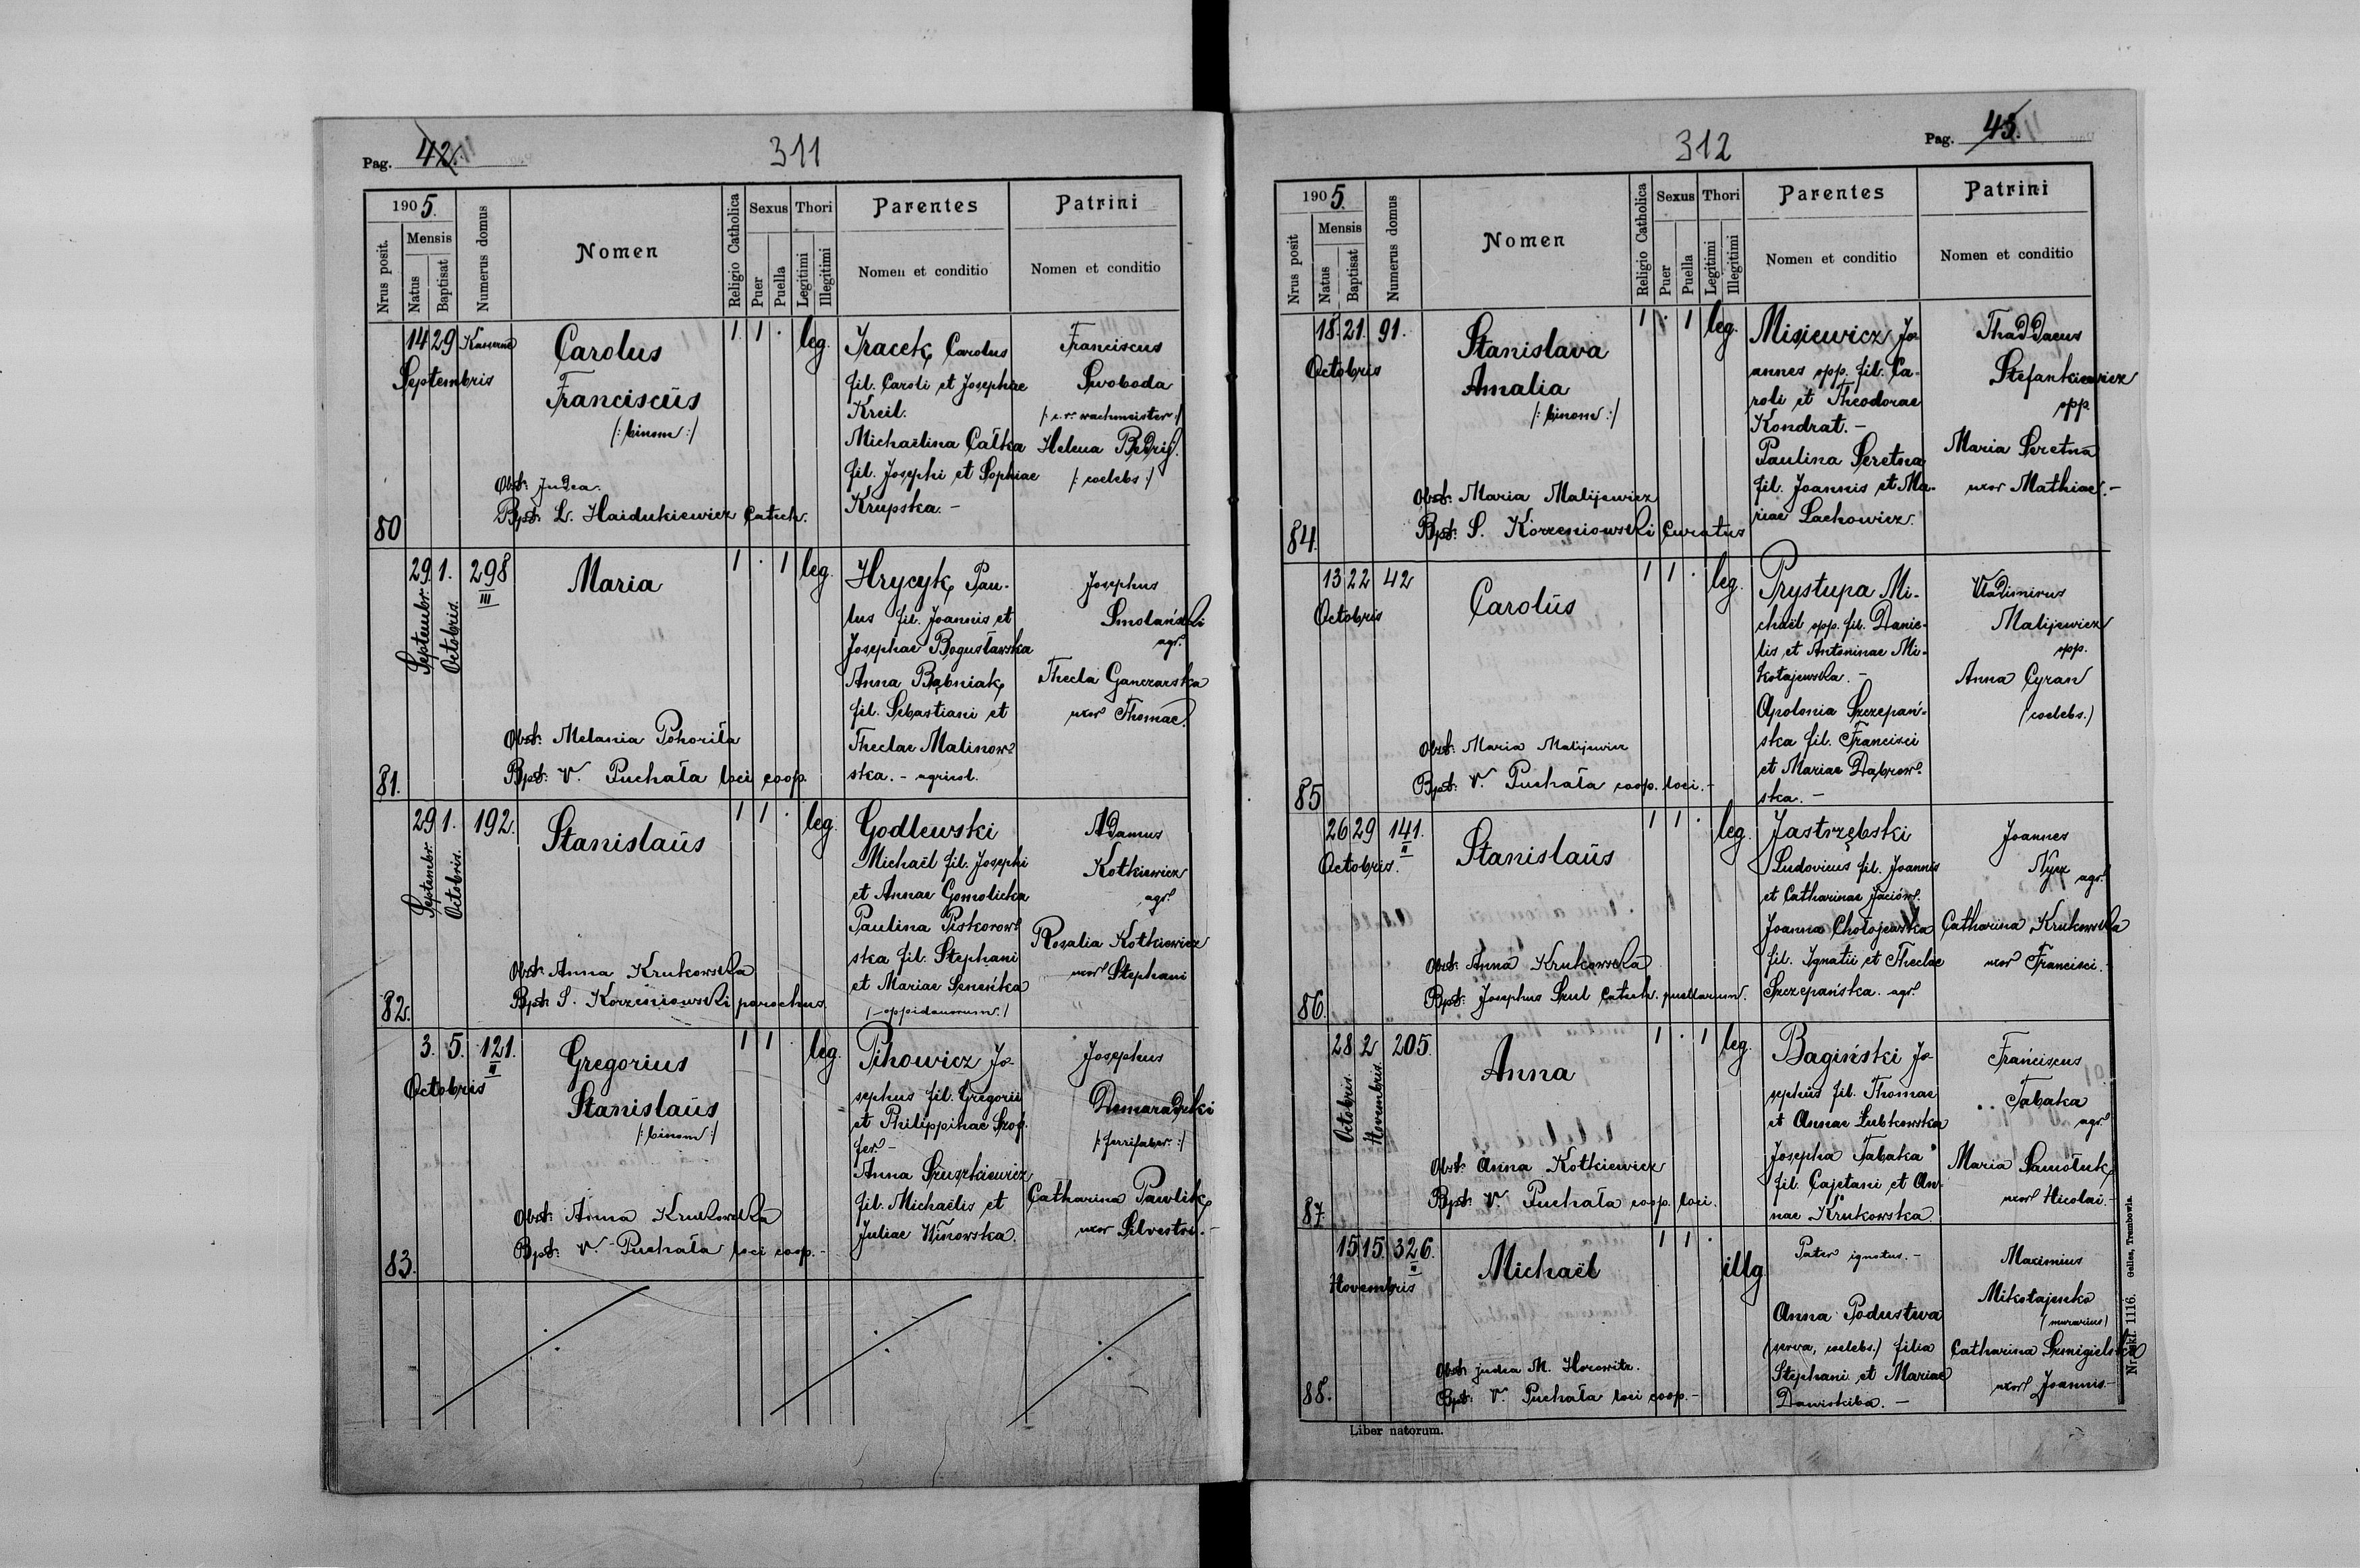 Pag. 42.
311
1905.
Nrus posit.
Mensis
Natus
Baptisat
Numerus domus
Nomen
Religio Catholica
Sexus
Puer
Puella
Thori
Legitimi
Illegitimi
Parentes
Nomen et conditio
Patrini
Nomen et conditio
80
14 29
Septembris
Carolus
Franciscus
/: binom :/
Obst. Judea.
Bapt. L. Haidukiewicz Catech.
1. 1 . leg.
Carolus
fil. Caroli et Josephae
Kreil.
Michaëlina Całka
fil. Josephi et Sophiae
Krupska. -
Franciscus
Swoboda
/: c. r. wachmeister :/
Helena
/: coelebs :/
81.
29. 1. 298
III
Septembr.
Octobris.
Maria
Obst. Melania Pohoriła
Bapt. V. Puchała loci coop.
1 . 1 leg.
Hrycyk Pau-
lus fil. Joannis et
Josephae Bogusławska
Anna Bąbniak
fil. Sebastiani et
Theclae Malinow-
ska. - agricol.
Josephus
Smolański
agr.
Thecla Ganczarska
uxor Thomae.
82.
29 1. 192.
Septembr.
Octobris.
Stanislaus
Obst. Anna Krukowska
Bapt. S. Korzeniowski parochus.
1 1 . leg.
Godlewski
Michaël fil. Josephi
et Annae Gomolicka
Paulina Piskorow-
ska fil. Stephani
et Mariae
/-oppidanorum./
Adamus
Kotkiewicz
agr.
Rosalia Kotkiewicz
uxor Stephani
83.
3. 5. 121.
II
Octobris
Gregorius
Stanislaus
/: binom :/
Obst. Anna Krukowska
Bapt. V. Puchała loci coop. -
1 1 . leg.
Pihowicz Jo-
sephus fil. Gregorii
et Philippinae Szof-
fer. -
Anna Szuszkiewicz
fil. Michaëlis et
Juliae Winowska.
Josephus
Domaradzki
/: ferrifaber :/
Catharina Pawlik
uxor Silvestri. -
Pag. 43.
312
1905.
Nrus posit
Mensis
Natus
Baptisat
Numerus domus
Nomen
Religio Catholica
Sexus
Puer
Puella
Thori
Legitimi
Illegitimi
Parentes
Nomen et conditio
Patrini
Nomen et conditio
84.
18. 21. 91.
Octobris
Stanislava
Amalia
/: binom :/
Obst. Maria Malijewicz
Bapt. S. Korzeniowski Curatus
1 . 1 leg.
Misiewicz Jo-
annes opp. fil. Ca-
roli et Theodorae
Kondrat. -
Paulina Seretna
fil. Joannis et Ma-
riae Lachowicz.
Thaddaeus
Stefankiewicz
opp.
Maria Seretna
uxor Mathiae. -
85
13 22 42
Octobris
Carolus
Obst. Maria Malijewicz
Bapt. V. Puchała coop. loci. -
1 1 . leg.
Prystupa Mi-
chaël opp. fil. Danie-
lis et Antoninae Mi-
kołajewska. -
Apolonia Szczepań-
ska fil. Francisci
et Mariae Dąbrow-
ska. -
Vladimirus
Malijewicz
opp.
Anna Cyran
(coelebs.)
86.
26 29 141.
II
Octobris.
Stanislaus
Obst. Anna Krukowska
Bapt. Josephus Szul Catech. puellarum.
1 1 . leg.
Jastrzębski
Ludovicus fil. Joannis
et Catharinae Jaciów.
Joanna Chołojewska
fil. Ignatii et Theclae
Szczepańska. agr.
Joannes
Nycz agr.
Catharina Krukowska
uxor Francisci. -
87.
28 2 205.
Octobris.
Novembris.
Anna
Obst. Anna Kotkiewicz
Bapt. V. Puchała coop. loci.
1 . 1 leg.
Bagiński Jo-
sephus fil. Thomae
et Annae Łubkowska
Josepha Tabaka
fil. Cajetani et An-
nae Krukowska.
Franciscus
Tabaka
agr.
Maria Samoluk
uxor Nicolai. -
88.
15 15. 326.
II
Novembris
Michaël
Obst. judea M. Horowitz.
Bapt. V. Puchała loci coop. -
1 1 . illg.
Pater ignotus. -
Anna Podustwa
(serva, coelebs.) filia
Stephani et Mariae
Dawiskiba. -
Maximius
Mikołajenko
(murarius)
Catharina Szmigielska
uxor Joannis. -
Liber natorum.
Nr. skł. 1116. Gelles, Trembowla.